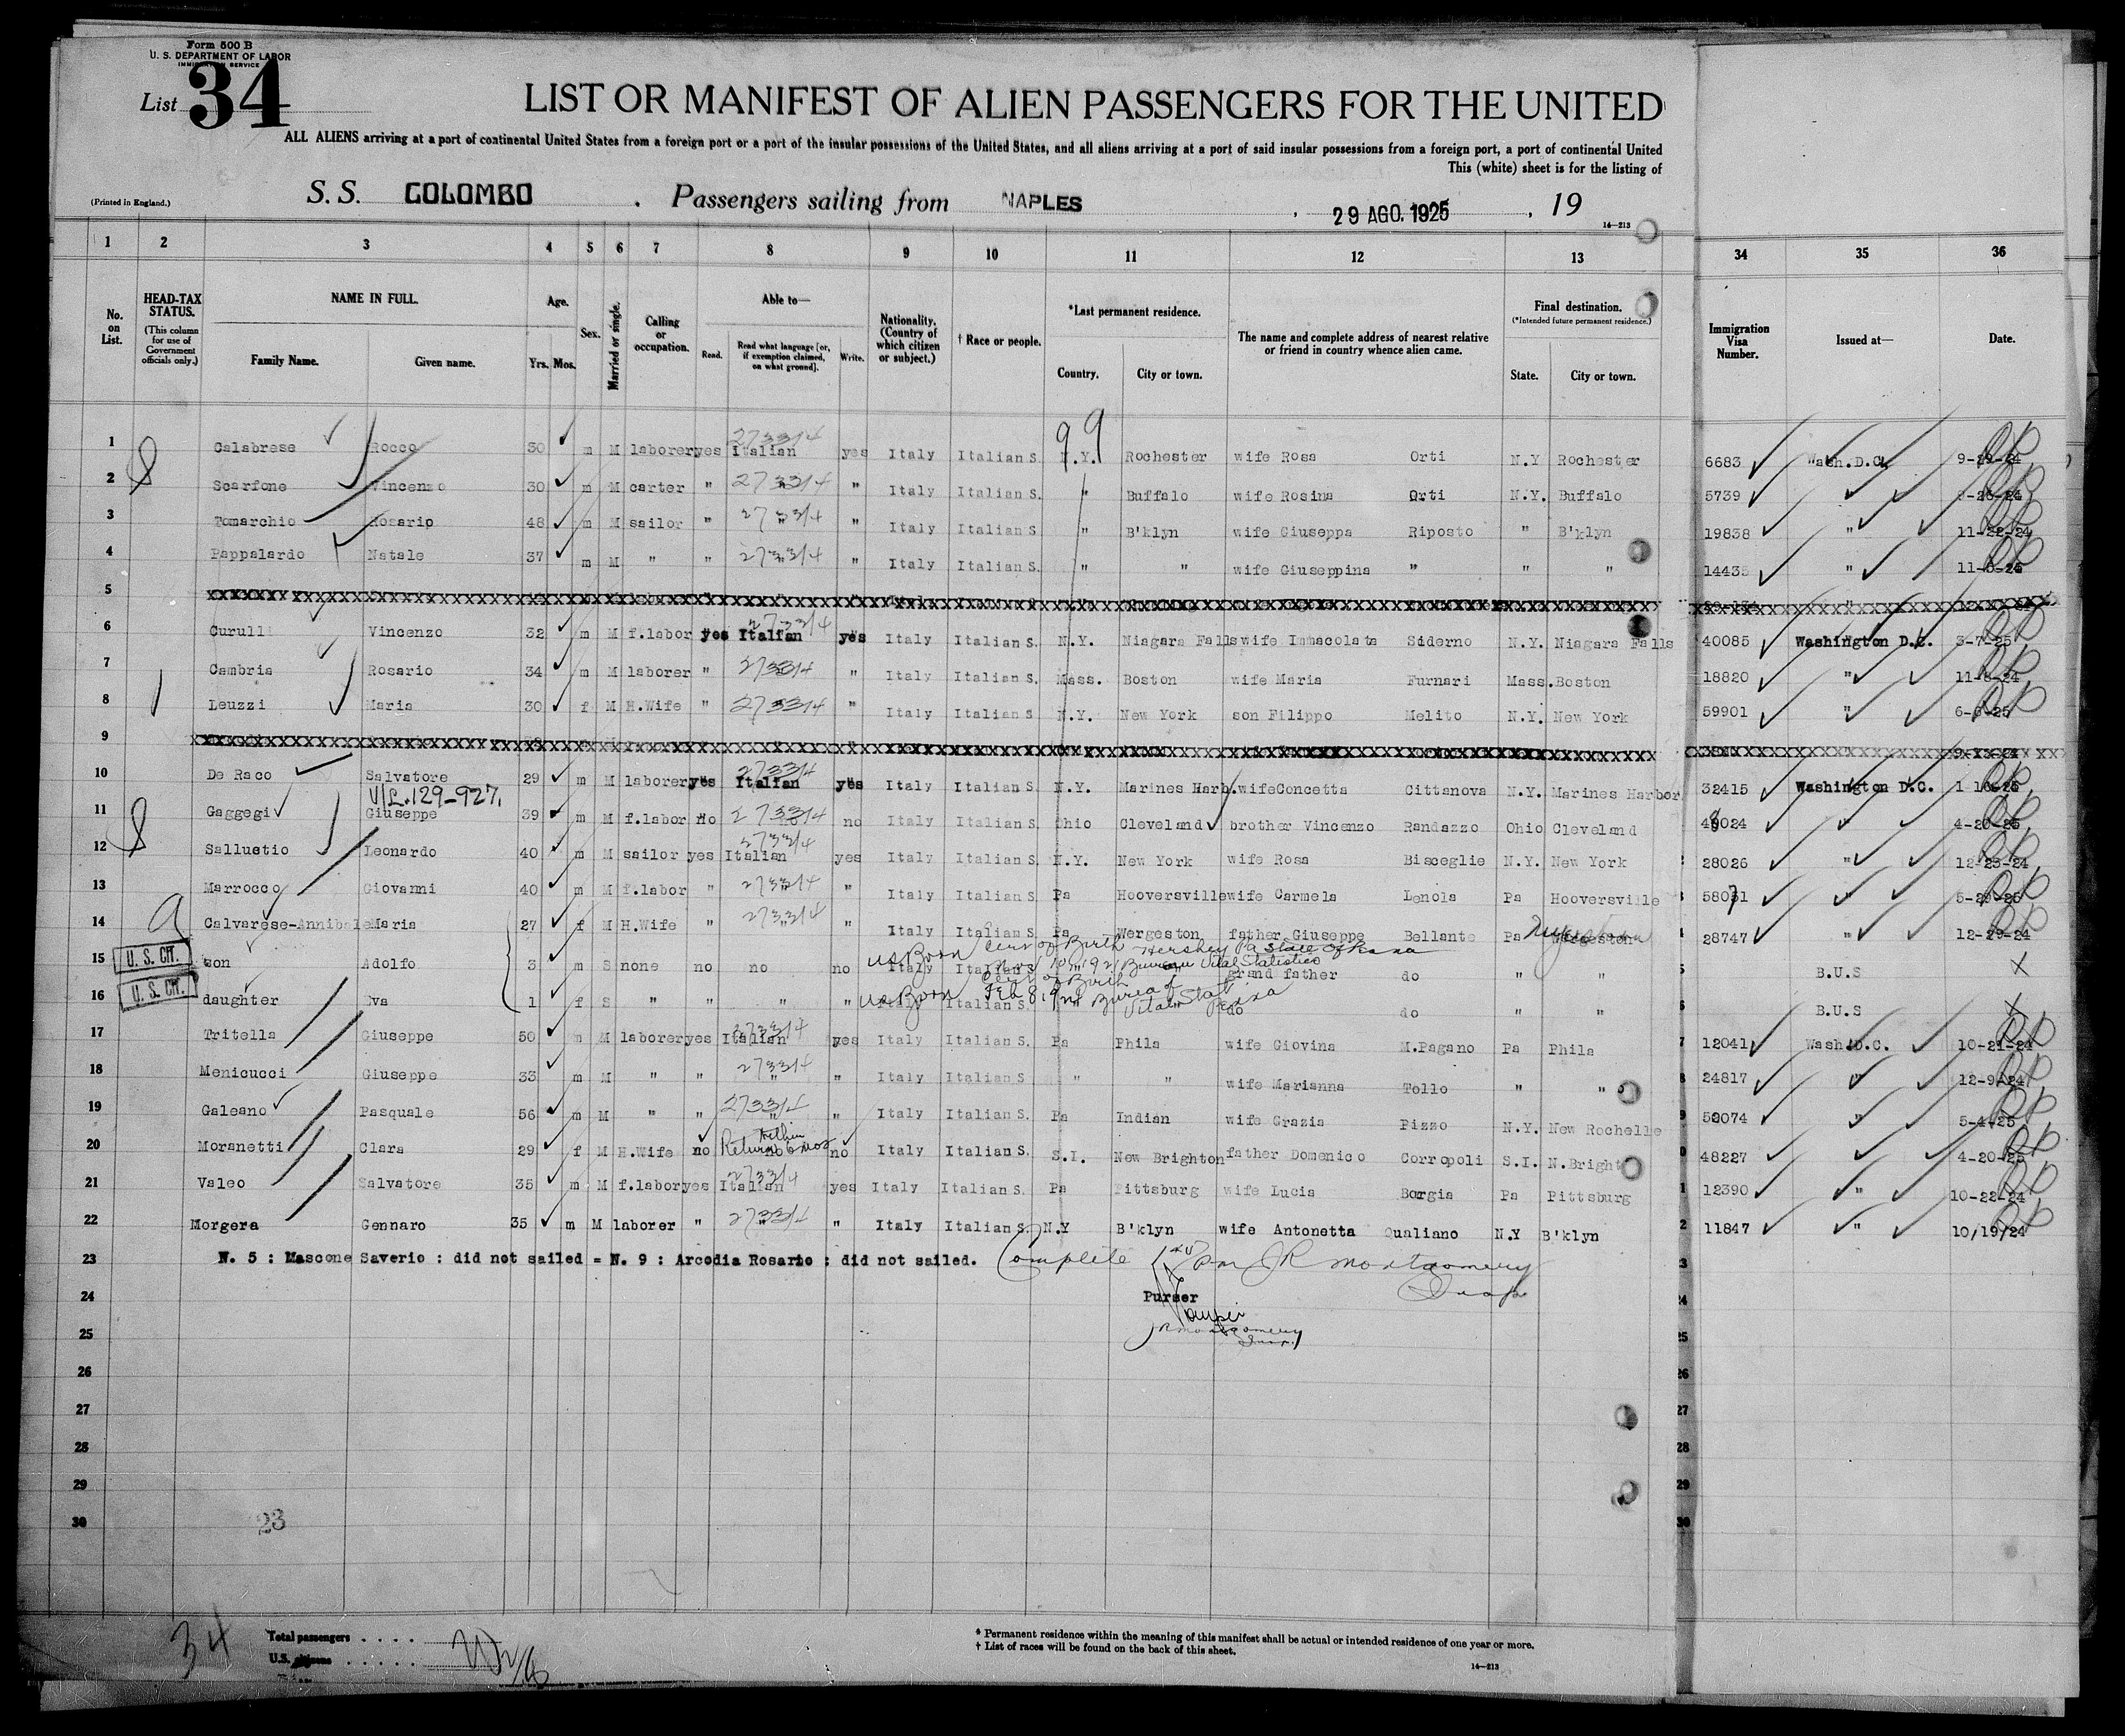 Form 500 B
U. S. DEPARTMENT OF LABOR
IMMIGRATION SERVICE
List 34
LIST OR MANIFEST OF ALIEN PASSENGERS FOR THE UNITED
ALL ALIENS arriving at a port of continental United States from a foreign port or a port of the insular possessions of the United States, and all aliens arriving at a port of said insular possessions from a foreign port, a port of continental United
This (white) sheet is for the listing of
(Printed in England.)
S. S. COLOMBO . Passengers sailing from NAPLES , 29 AGO. 1925 , 19
14—213
1 2 3 4 5 6 7 8 9 10 11 12 13 34 35 36
No. on List.
HEAD-TAX STATUS. (This column for use of Government officials only.)
NAME IN FULL. Family Name. Given name.
Age. Yrs. Mos.
Sex.
Married or single.
Calling or occupation.
Able to— Read. Read what language [or, if exemption claimed, on what ground]. Write.
Nationality. (Country of which citizen or subject.)
† Race or people.
*Last permanent residence. Country. City or town.
The name and complete address of nearest relative or friend in country whence alien came.
Final destination. (*Intended future permanent residence.) State. City or town.
Immigration Visa Number.
Issued at—
Date.
99
1 Calabrese Rocco 30 m M laborer yes 273314 Italian yes Italy Italian S. N.Y. Rochester wife Rosa Orti N.Y Rochester 6683 Wash.D.C.
2 Scarfone Vincenzo 30 m M carter " 273314 " Italy Italian S. " Buffalo wife Rosina Orti N.Y. Buffalo 5739
3 Tomarchio Rosario 48 m M sailor " 273314 " Italy Italian S. " B'klyn wife Giuseppa Riposto " B'klyn 19838 " 11-22-24
4 Pappalardo Natale 37 m M " " 273314 " Italy Italian S. " " wife Giuseppina " " " 14435 "
5
6 Curulli Vincenzo 32 m M f.labor yes 273314 Italian yes Italy Italian S. N.Y. Niagara Falls wife Immacolata Siderno N.Y. Niagara Falls 40085 Washington D.C. 3-7-25
7 Cambria Rosario 34 m M laborer " 273314 " Italy Italian S. Mass. Boston wife Maria Furnari Mass. Boston 18820 "
8 Leuzzi Maria 30 f M H.Wife " 273314 " Italy Italian S N.Y. New York son Filippo Melito N.Y. New York 59901 "
9
10 De Raco Salvatore 29 m M laborer yes 273314 Italian yes Italy Italian S. N.Y. Marines Harb. wife Concetta Cittanova N.Y. Marines Harbor 32415 Washington D.C.
V/L.129-927.
11 Gaggegi Giuseppe 39 m M f.labor no 273314 no Italy Italian S. Ohio Cleveland brother Vincenzo Randazzo Ohio Cleveland " 4-20-25
12 Sallustio Leonardo 40 m M sailor yes 273314 Italian yes Italy Italian S. N.Y. New York wife Rosa Bisceglie N.Y. New York 28026 " 12-23-24
13 Marrocco Giovanni 40 m M f.labor " 273314 " Italy Italian S. Pa Hooversville wife Carmela Lenola Pa Hooversville " 5-29-25
14 Calvarese-Annibale Maria 27 f M H.Wife " 273314 " Italy Italian S. Pa Wergeston father Giuseppe Bellante Pa 28747 " 12-29-24
U.S. Born Cert of Birth Hershey Pa State of Penna
U. S. CIT. 15 son Adolfo 3 m S none no no no Italy Italian 1921 Bureau Vital Statistics grand father do " " B.U.S
Cert of Birth
U. S. CIT. 16 daughter Eva 1 f S " " " " U.S. Born Italian S. Feb 8, Bureau of Vital Stat Penna do do " " B.U.S
17 Tritella Giuseppe 50 m M laborer yes 273314 Italian yes Italy Italian S. Pa Phila wife Giovina M.Pagano Pa Phila 12041 Wash.D.C. 10-21-24
18 Menicucci Giuseppe 33 m M " " 273314 " Italy Italian S " " wife Marianna Tollo " " 24817 " 12-9-24
19 Galeano Pasquale 56 m M " " 273314 " Italy Italian S. Pa Indian wife Grazia Pizzo N.Y. New Rochelle " 5-4-25
20 Moranetti Clara 29 f M H.Wife no Return 6 mos no Italy Italian S. S.I. New Brighton father Domenico Corropoli S.I. N.Bright 48227 " 4-20-25
21 Valeo Salvatore 35 m M f.labor yes 273314 Italian yes Italy Italian S. Pa Pittsburg wife Lucia Borgia Pa Pittsburg 12390 " 10-22-24
22 Morgera Gennaro 35 m M laborer " 273314 " Italy Italian S. N.Y B'klyn wife Antonetta Qualiano N.Y B'klyn 11847 " 10/19/24
23 N. 5 : Mascone Saverio : did not sailed = N. 9 : Arcodia Rosario : did not sailed. Complete JR Montgomery
24 Purser Insp
25 JR Montgomery
Insp.
26
27
28
29
30
23
34
Total passengers . . . .
U.S. citizens . . . . .
* Permanent residence within the meaning of this manifest shall be actual or intended residence of one year or more.
† List of races will be found on the back of this sheet.
14—213